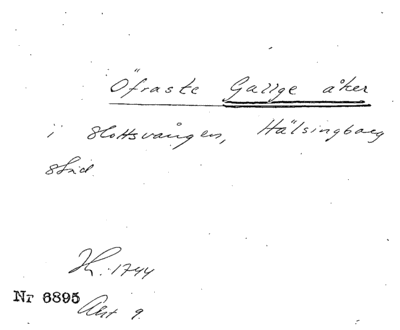 Öfraste Gallge åker
i Slottsvången, Hälsingborg
stad
H. 1744
Akt 9.
Nr 6895